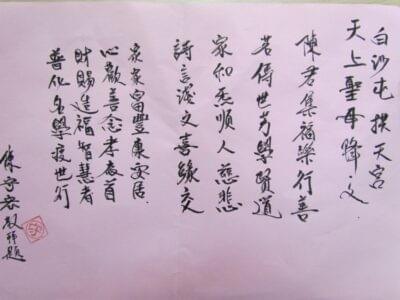 白沙屯拱天宮
天上聖母降文
陳君集福樂行善
若傳世方學賢道
家和丕順人慈悲
詩言談文喜緣交
家家富豐康安居
心歡善念孝為首
財賜造福智慧者
普化名學度世行
陳守宏敬拜題